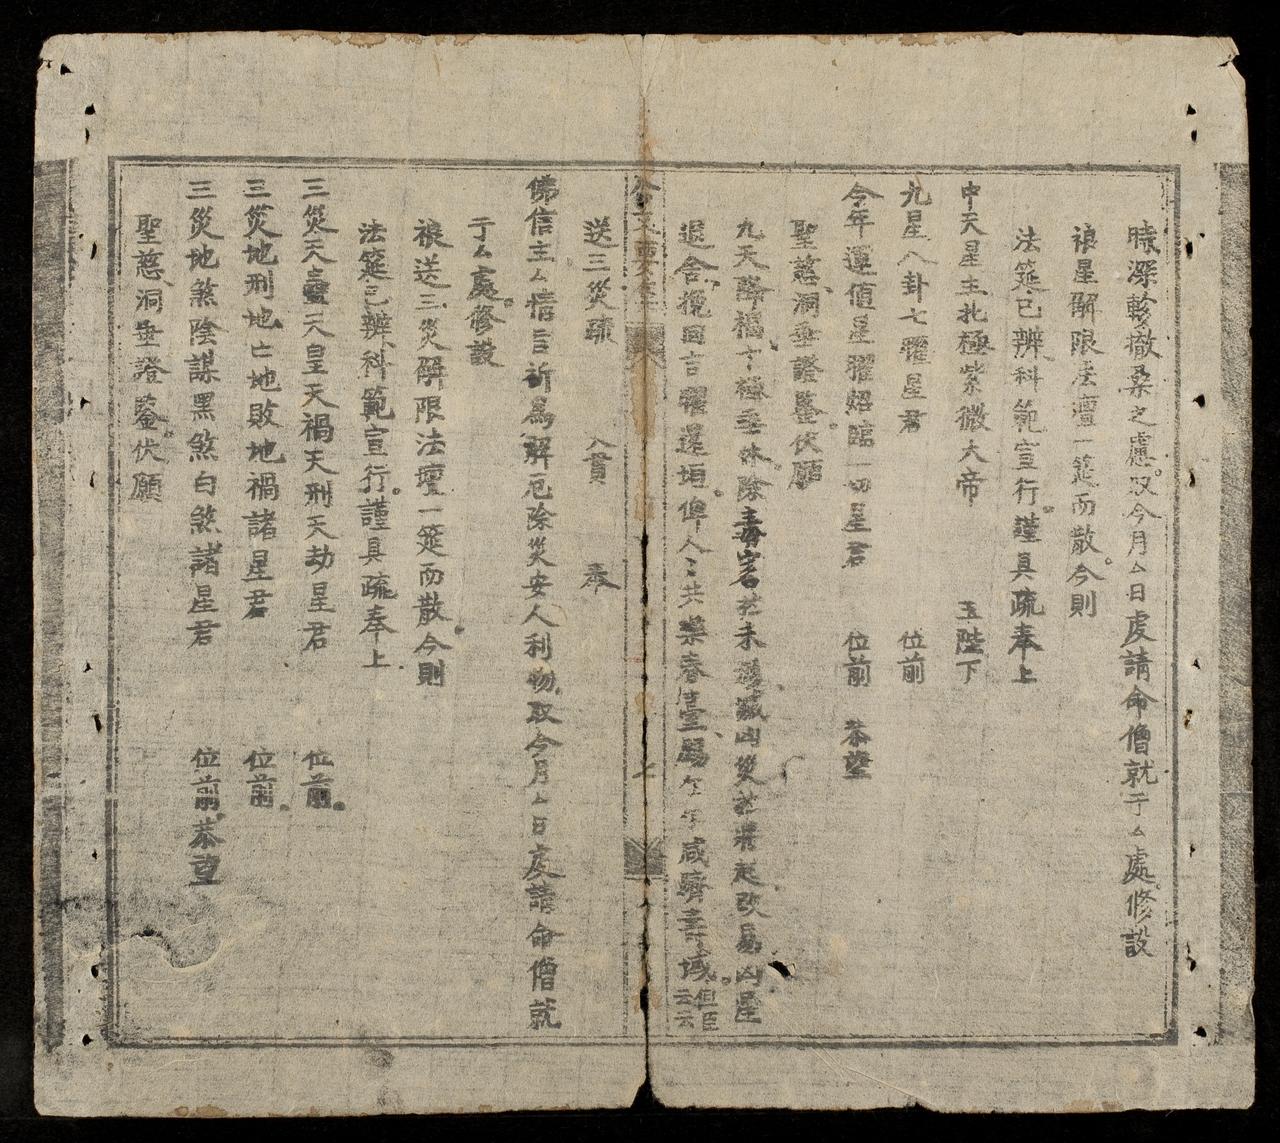 時深軫撤桑之慮取今月厶日虔請命僧就于厶處修設
禳星解限法壇一筵而散今則
法筵已辨科範宣行謹具疏奉上
中天星主北極紫微大帝 玉陛下
九星八卦七曜星君 位前
今年運值星曜照臨一切星君 位前 恭望
聖慈洞垂證鑒伏願
九天降福十極垂休除毒害於未萌滅凶災於將起改易凶星
退舍挽回吉曜還垣俾人〻共樂春臺歲年年咸躋壽域但臣云云
送三災疏 入貫 奉
佛信主厶情旨祈為解厄除災安人利物取今月厶日虔請命僧就
于厶處修設
禳送三災解限法壇一筵而散今則
法筵已辨科範宣行謹具疏奉上
三災天皇天禍天刑天劫星君 位前
三災地刑地亡地敗地禍諸星君 位前
三災地煞陰謀黑煞白煞諸星君 位前恭望
聖慈洞垂證鑒伏願